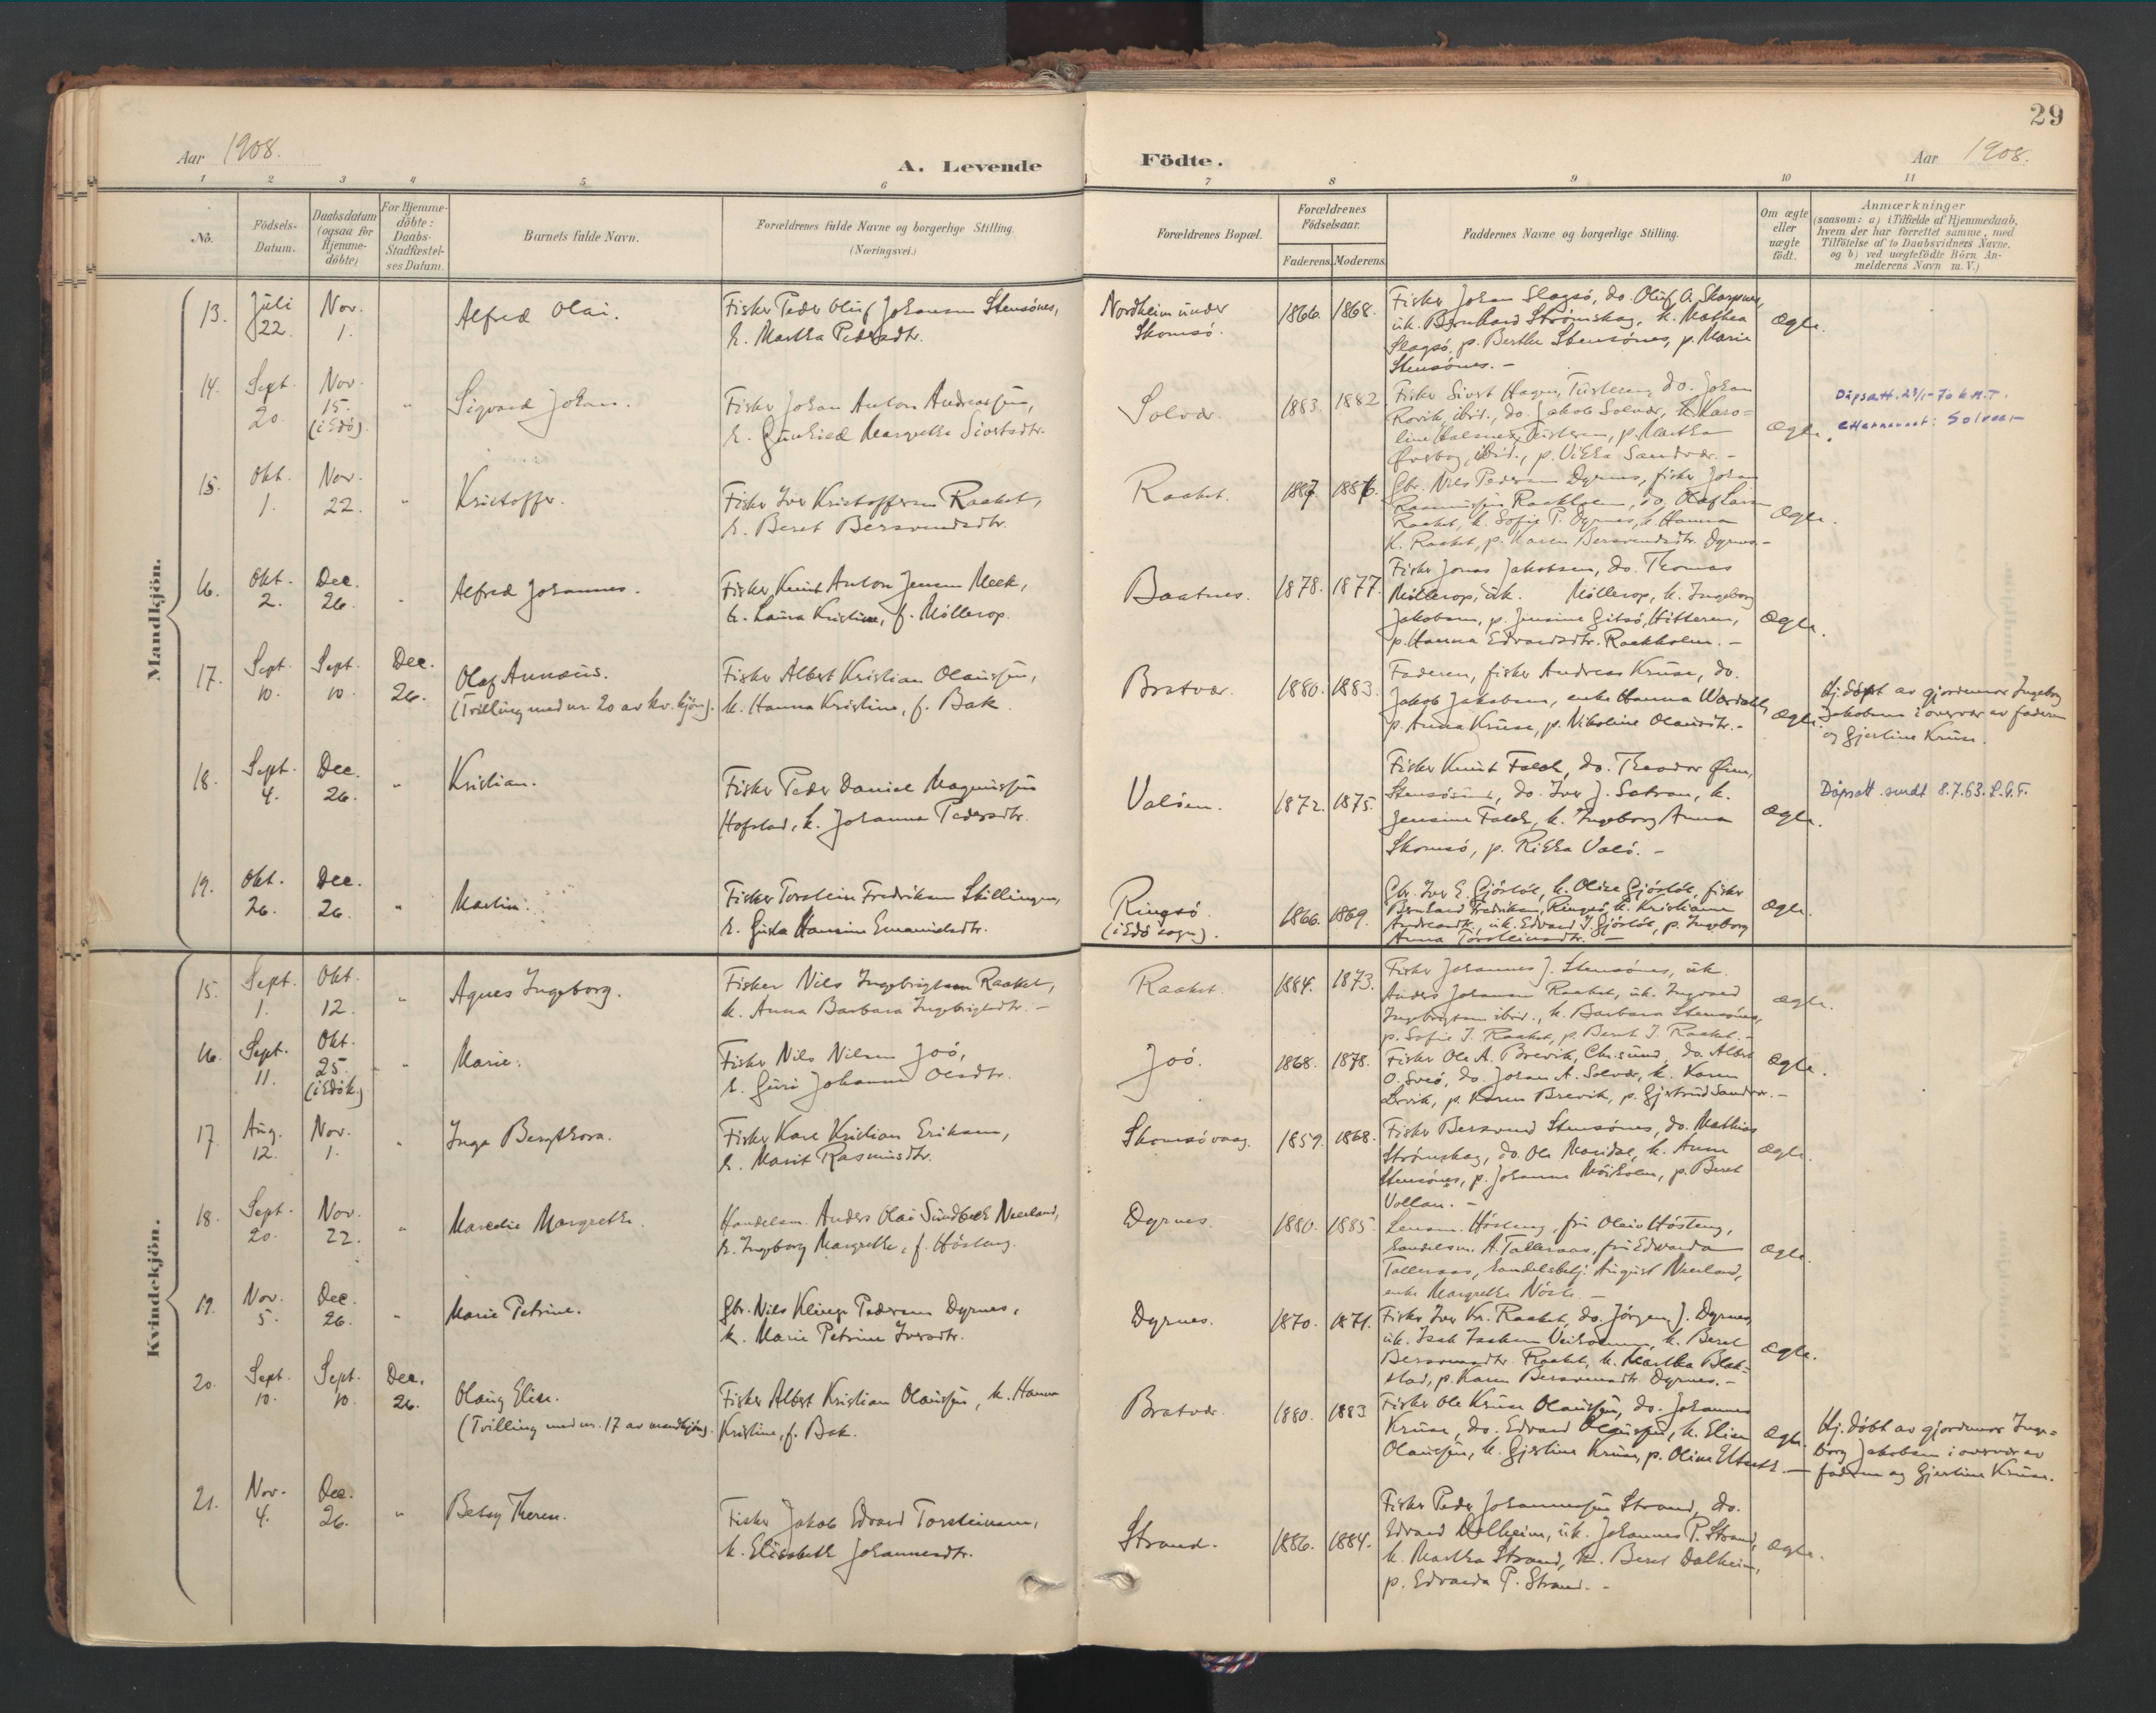 29
Aar 1908.
A. Levende
Födte.
Aar 1908.
1 2 3 4 5 6 7 8 9 10 11
No.
Födsels-
Datum.
Daabsdatum
(ogsaa for
Hjemme-
döbte)
For Hjemme-
döbte:
Daabs-
Stadfæstel-
ses Datum.
Barnets fulde Navn.
Forældrenes fulde Navne og borgerlige Stilling.
(Næringsvei.)
Forældrenes Bopæl.
Forældrenes
Födselsaar.
Faderens. Moderens.
Faddernes Navne og borgerlige Stilling.
Om ægte
eller
uægte
født.
Anmærkninger
(saasom: a) i Tilfælde af Hjemmedaab,
hvem der har forrettet samme, med
Tilföielse af to Daabsvidners Navne.
og b) ved uægtefödte Börn An-
melderens Navn m. V.)
Mandkjön.
13. Juli 22. Nov. 1. Alfred Olai.
Fisker Peder Oluf Johansen Stensönes,
h. Martha Pedersdtr.
Nordheim under
Skomsö.
1866. 1868.
Fisker Johan Slagsö, do. Oluf A.
uk. Bernhard Strömskag, k. Mathea
Slagsö, p. Berthe Stensönes, p. Marie
Stensönes. -
Ægte.
14. Sept. 20. Nov. 15. (i Edö). " Sigvard Johan.
Fisker Johan Anton Andreassen,
h. Gunhild Margrethe Sivertsdtr.
Solvær.
1883. 1882
Fisker Sivert Hagen, Tusteren, do. Johan
Rovik, ibid., do. Jakob Solvær, k. Karo-
line Tusteren, p. Martha
ibid., p. Vikka Sandvær. -
Ægte.
Dåpsatt. 23/1-70 k.M.T.
etternavnet: Solvær
15. Okt. 1. Nov. 22. " Kristoffer.
Fisker Iver Kristoffersen Raaket,
h. Beret Bersvendsdtr.
Raaket.
1887. 1886.
Gbr. Nils Pedersen Dyrnes, fisker Johan
Rasmussen Raakholm, do. Olaf Larsen
Raaket, k. Sofie P. Dyrnes, k. Hanna
K. Raaket, p. Karen Bersvendsdtr. Dyrnes. -
Ægte.
16. Okt. 2. Dec. 26. " Alfred Johannes.
Fisker Knut Anton Jensen Meek,
h. Laura Kristine, f. Möllerop.
Baatnes.
1878. 1877.
Fisker Jonas Jakobsen, do. Thomas
Möllerop, uk. Möllerop, k. Ingeborg
Jakobsen, p. Jensine Gitsö, Hitteren,
p. Hanna Edvardsdtr. Raakholm. -
Ægte.
17. Sept. 10. Sept. 10. Dec. 26. Olaf Annæus.
(Tvilling med nr. 20 av kv. kjön).
Fisker Albert Kristian Olaussen,
k. Hanna Kristine, f. Bak.
Bratvær.
1880. 1883.
Faderen, fisker Andreas Kruse, do.
Jakob Jakobsen, enke Hanna Werdahl,
p. Anna Kruse, p. Nikoline Olausdtr. -
Ægte.
Hj. döpt av gjordemor Ingeborg
Jakobsen i overvær av faderen
og Gjertine Kruse.
18. Sept. 4. Dec. 26. " Kristian.
Fisker Peder Daniel Magnussen
Hofstad, k. Johanna Pedersdtr.
Valöen.
1872. 1875.
Fisker Knut Falch, do. Theodor
Stensösund, do. Iver J. Sætran, k.
Jensine Falch, k. Ingeborg Anna
Skomsö, p. Rikka Valö. -
Ægte.
Dåpsatt. sendt 8.7.63. L.G.F.
19. Okt. 26. Dec. 26. " Martin.
Fisker Torstein Fredriksen Skillingen,
h. Gusta Hansine Emanuelsdtr.
Ringsö.
(i Edö sogn).
1866. 1869.
Gbr. Iver E. Gjöstöl, k. Olise Gjöstöl, fisker
Bernhard Fredriksen, Ringsö, k. Kristianne
Andreasdtr., uk. Edvard I. Gjöstöl, p. Ingeborg
Anna Torsteinsdtr. -
Ægte.
Kvindekjön.
15. Sept. 1. Okt. 12. " Agnes Ingeborg.
Fisker Nils Ingebrigtsen Raaket,
k. Anna Barbara Ingebrigtsdtr. -
Raaket.
1884. 1873.
Fisker Johannes J. Stensönes, uk.
Anders Johansen Raaket, uk. Ingvard
Ingebrigtsen ibid., k. Barbara Stensönes,
p. Sofie I. Raaket, p. Beret I. Raaket. -
Ægte.
16. Sept. 11. Okt. 25. (i Edök.) " Marie.
Fisker Nils Nilsen Joö,
h. Guri Johanne Olsdtr.
Joö.
1868. 1878.
Fisker Ole A. Brevik, Chr.sund, do. Albert
O. Sveö, do. Johan A. Solvær, k. Karen
Brevik, p. Karen Brevik, p. Gjertrud Sandvær. -
Ægte.
17. Aug. 12. Nov. 1. " Inga Bergthora.
Fisker Karl Kristian Eriksen,
h. Marit Rasmusdtr.
Skomsövaag.
1859. 1868.
Fisker Bersvend Stensönes, do. Mathias
Strömskag, do. Ole Moridal, k. Anne
Stensönes, p. Johanna Möikolm, p. Beret
Vollan. -
Ægte.
18. Sept. 20. Nov. 22. " Maredie Margrethe.
Handelsm. Anders Olai Sundbek Neerland,
h. Ingeborg Margrethe, f. Hösteng.
Dyrnes.
1880. 1885.
Lensm. Hösteng, fru Olava Hösteng,
handelsm. A. Talleraas, fru Edvarda
Talleraas, handelsbetj. August Neerland,
enke Margrethe
Ægte.
19. Nov. 5. Dec. 26. " Marie Petrine.
Gbr. Nils Klinge Pedersen Dyrnes,
k. Marie Petrine Iversdtr.
Dyrnes.
1870. 1871.
Fisker Iver Kr. Raaket, do. Jörgen J. Dyrnes,
uk. Isak Isaksen Veiholmen, k. Beret
Bersvendsdtr. Raaket, k. Martha Blek-
stad, p. Karen Bersvendsdtr. Dyrnes. -
Ægte.
20. Sept. 10. Sept. 10. Dec. 26. Olaug Elise.
(Tvilling med nr. 17 av mandkjön).
Fisker Albert Kristian Olaussen, k. Hanna
Kristine, f. Bak.
Bratvær.
1880. 1883
Fisker Ole Kruse Olaussen, do. Johannes
Kruse, do. Edvard Olaussen, k. Elise
Olaussen, k. Gjertine Kruse, p. Oline -
Ægte.
Hj. döbt av gjordemor Inge-
borg Jakobsen i overvær av
faderen og Gjertine Kruse.
21. Nov. 4. Dec. 26. " Betsy Therese.
Fisker Jakob Edvard Torsteinsen,
k. Elisabeth Johannesdtr.
Strand.
1886. 1884.
Fisker Peder Johannessen Strand, do.
Edvard Dalheim, uk. Johannes P. Strand,
k. Martha Strand, k. Beret Dalheim,
p. Edvarda P. Strand. -
Ægte.